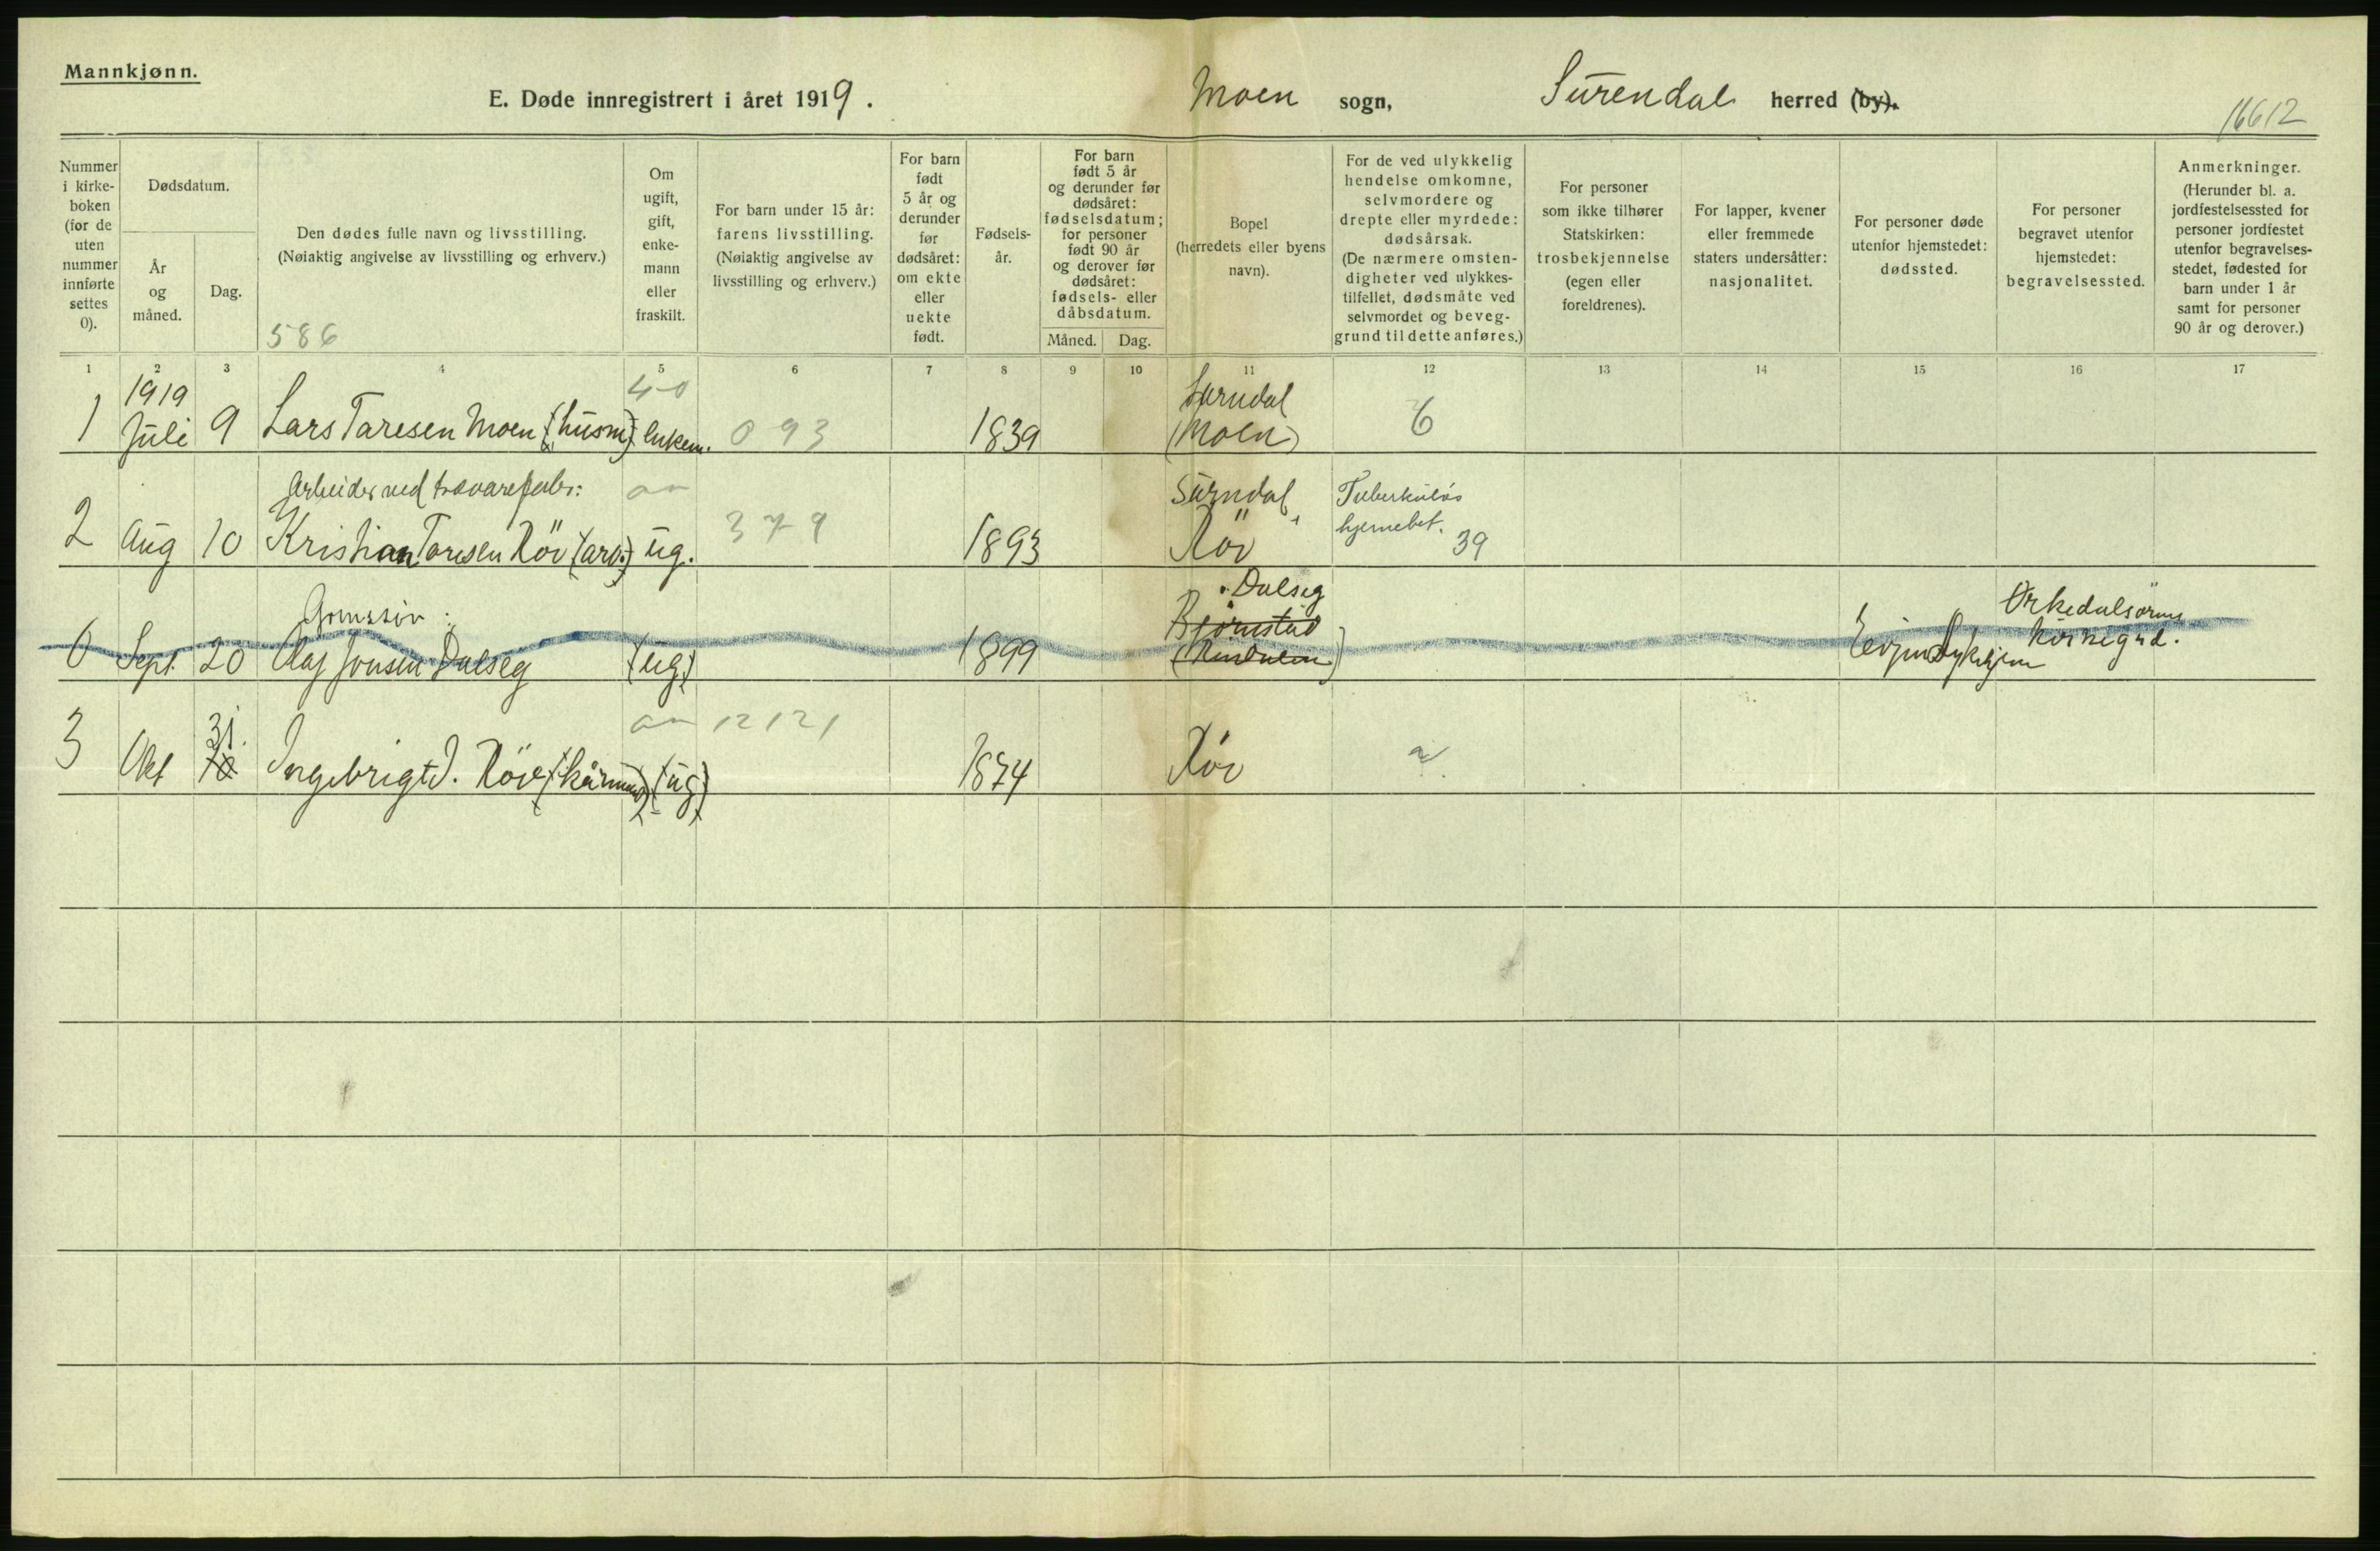 Mannkjønn.
E. Døde innregistrert i året 1919.
Moen sogn,
Surendal herred (by).
16612
Nummer i kirke- boken (for de uten nummer innførte settes 0).
Dødsdatum.
År og måned.
Dag.
Den dødes fulle navn og livsstilling.
(Nøiaktig angivelse av livsstilling og erhverv.)
586
Om ugift, gift, enke- mann eller fraskilt.
For barn under 15 år: farens livsstilling. (Nøiaktig angivelse av livsstilling og erhverv.)
For barn født 5 år og derunder før dødsåret: om ekte eller uekte født.
Fødsels- år.
For barn født 5 år og derunder før dødsåret: fødselsdatum; for personer født 90 år og derover før dødsåret: fødsels- eller dåbsdatum.
Måned. Dag.
Bopel (herredets eller byens navn).
For de ved ulykkelig hendelse omkomne, selvmordere og drepte eller myrdede: dødsårsak. (De nærmere omsten- digheter ved ulykkes- tilfellet, dødsmåte ved selvmordet og beveg- grund til dette anføres.)
For personer som ikke tilhører Statskirken: trosbekjennelse (egen eller foreldrenes).
For lapper, kvener eller fremmede staters undersåtter: nasjonalitet.
For personer døde utenfor hjemstedet: dødssted.
For personer begravet utenfor hjemstedet: begravelsessted.
Anmerkninger. (Herunder bl. a. jordfestelsessted for personer jordfestet utenfor begravelses- stedet, fødested for barn under 1 år samt for personer 90 år og derover.)
1 2 3 4 5 6 7 8 9 10 11 12 13 14 15 16 17
1919 40 Surndal
1 Juli 9 Lars Taresen Moen (husm) enkem. 093 1839 (Moen) 6
Arbeider ved trævarefabr: Surndal Tuberkuløs
2 Aug 10 Kristian Taresen Röv (arb.) ug. 379 1893 Röv hjernebet. 39
Dalseg
Bjørnstad Orkedalsörens
0 Sept. 20 Olaf Jonsen Dalseg (ug) 1899 (Rindalen) Kirkegård.
31. 12121
3 Okt 10 Ingebrigt J. Röv (kårmand) (ug) 1874 Röv